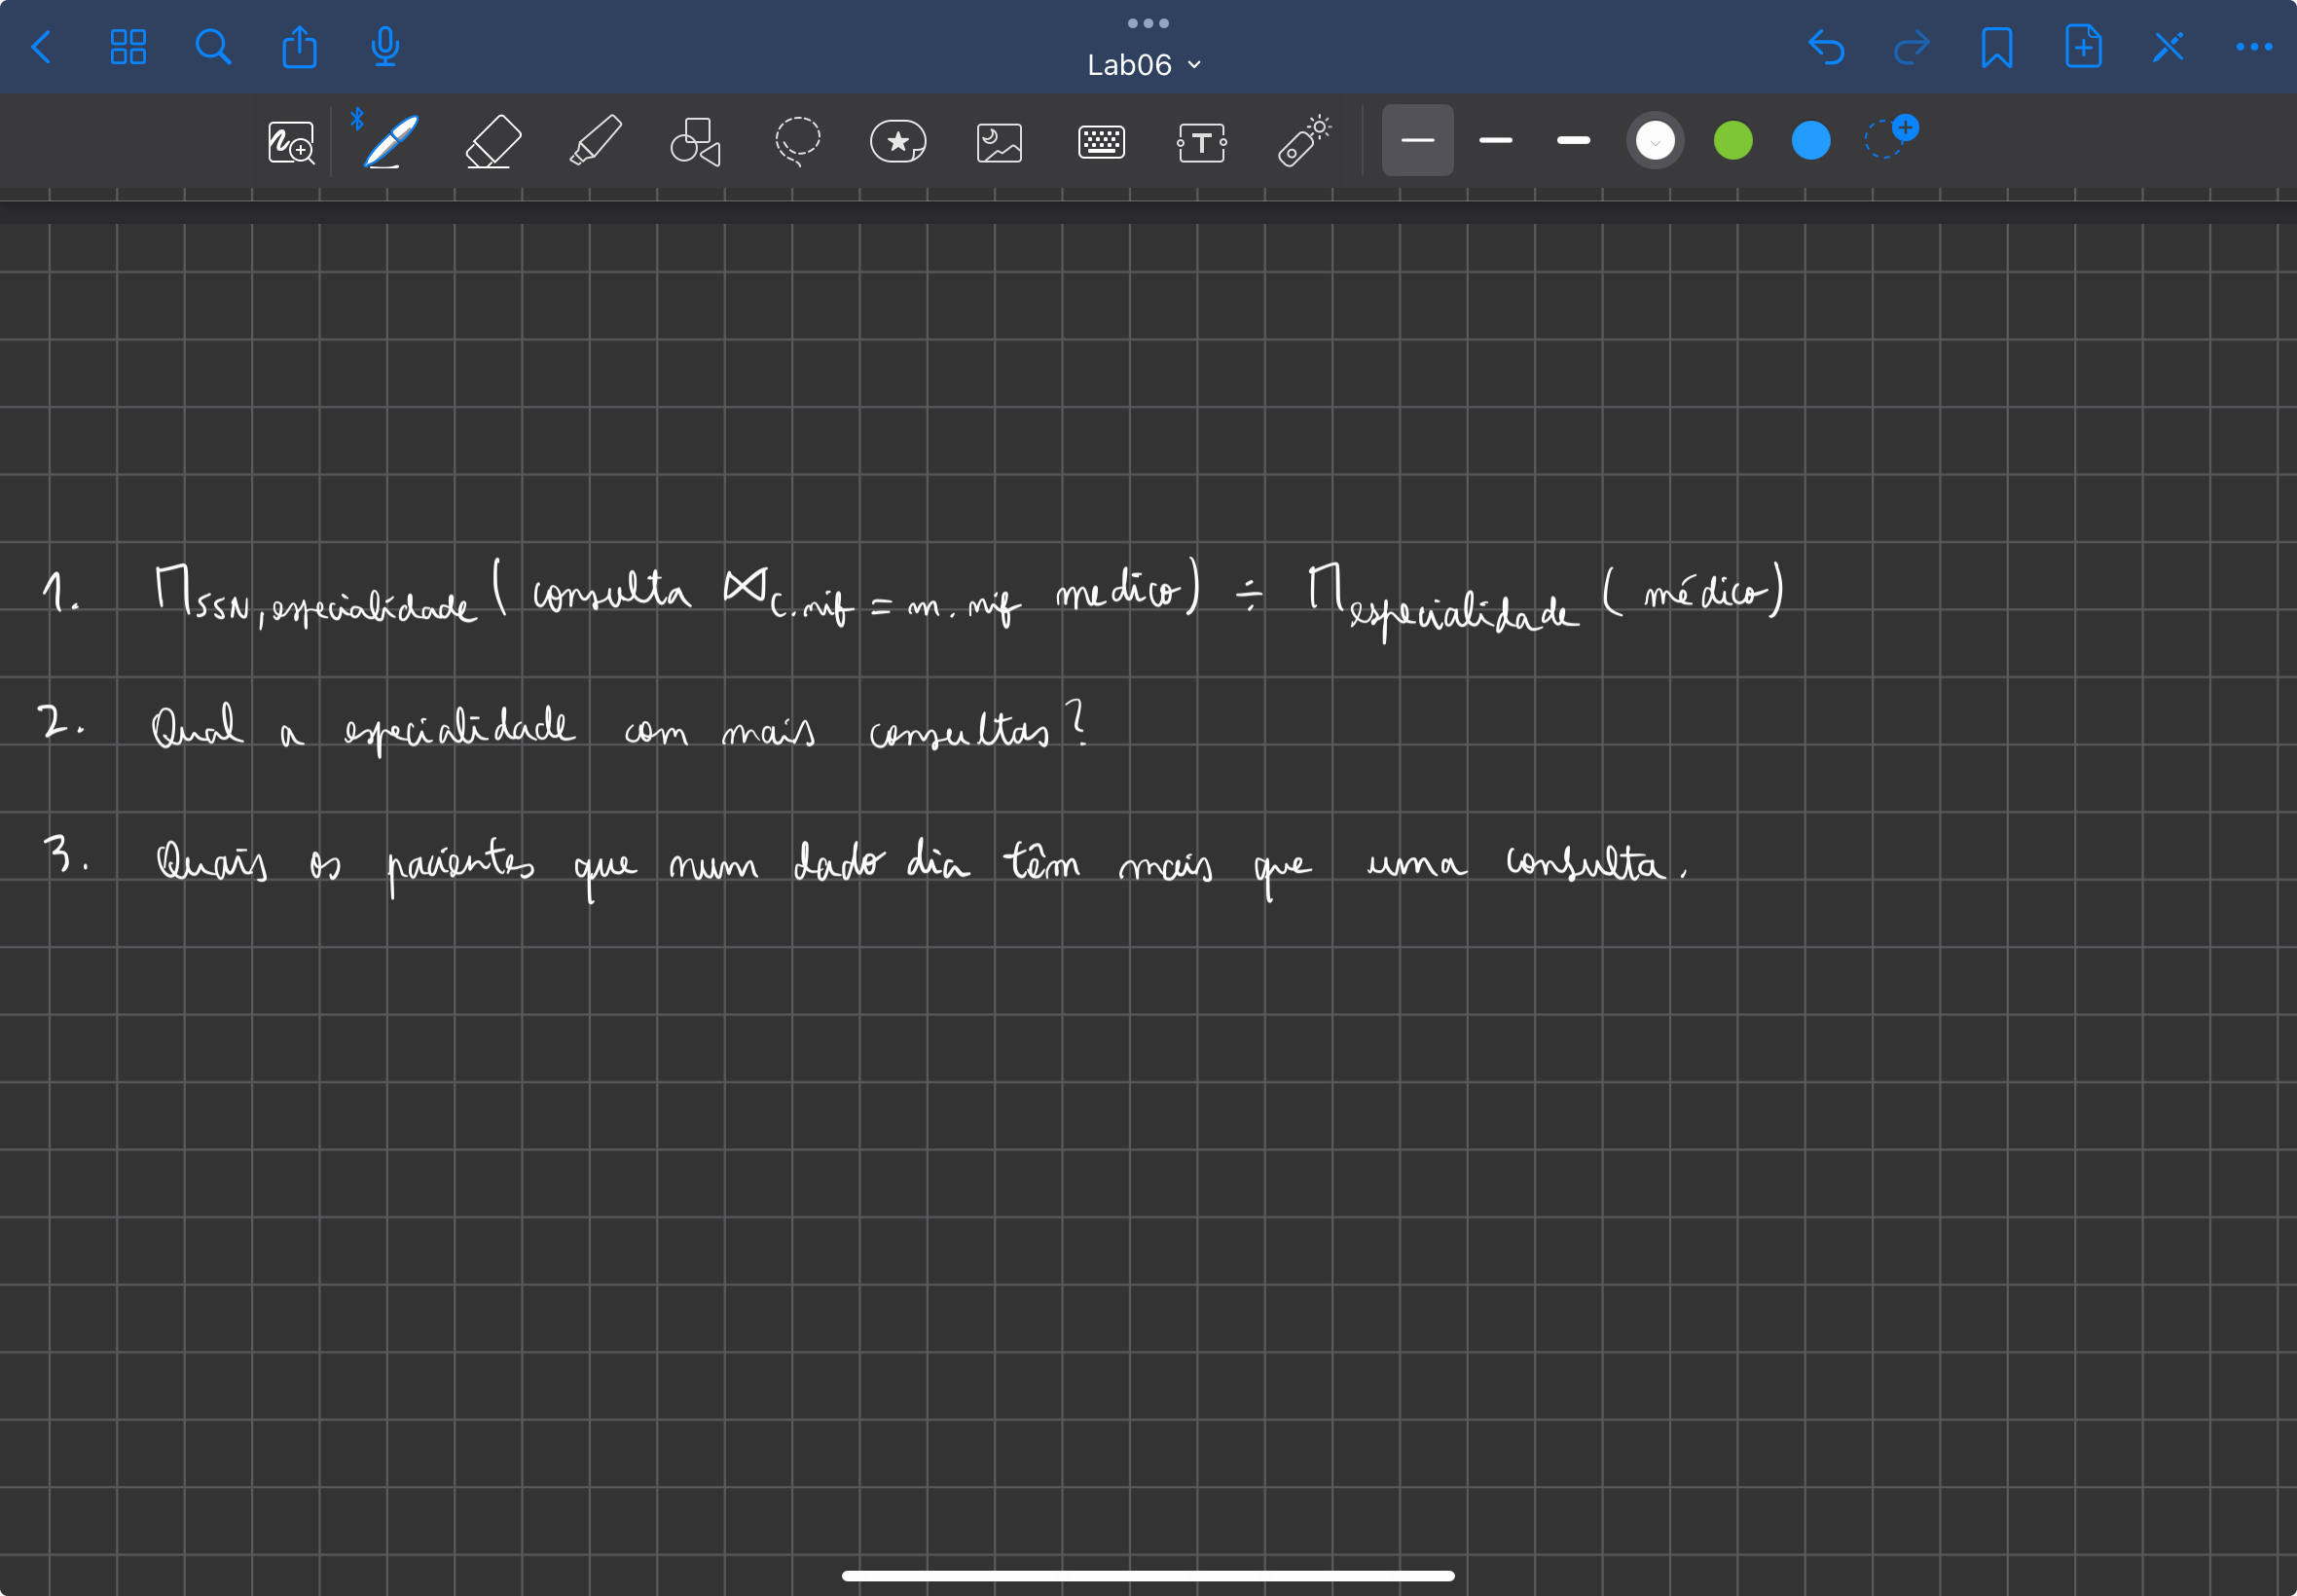 Lab06
1. Π ssn, especialidade ( consulta ⋈ c.nif = m.nif medico ) ÷ Π especialidade ( médico )
2. Qual a especialidade com mais consultas?
3. Quais os pacientes que num dado dia têm mais que uma consulta.